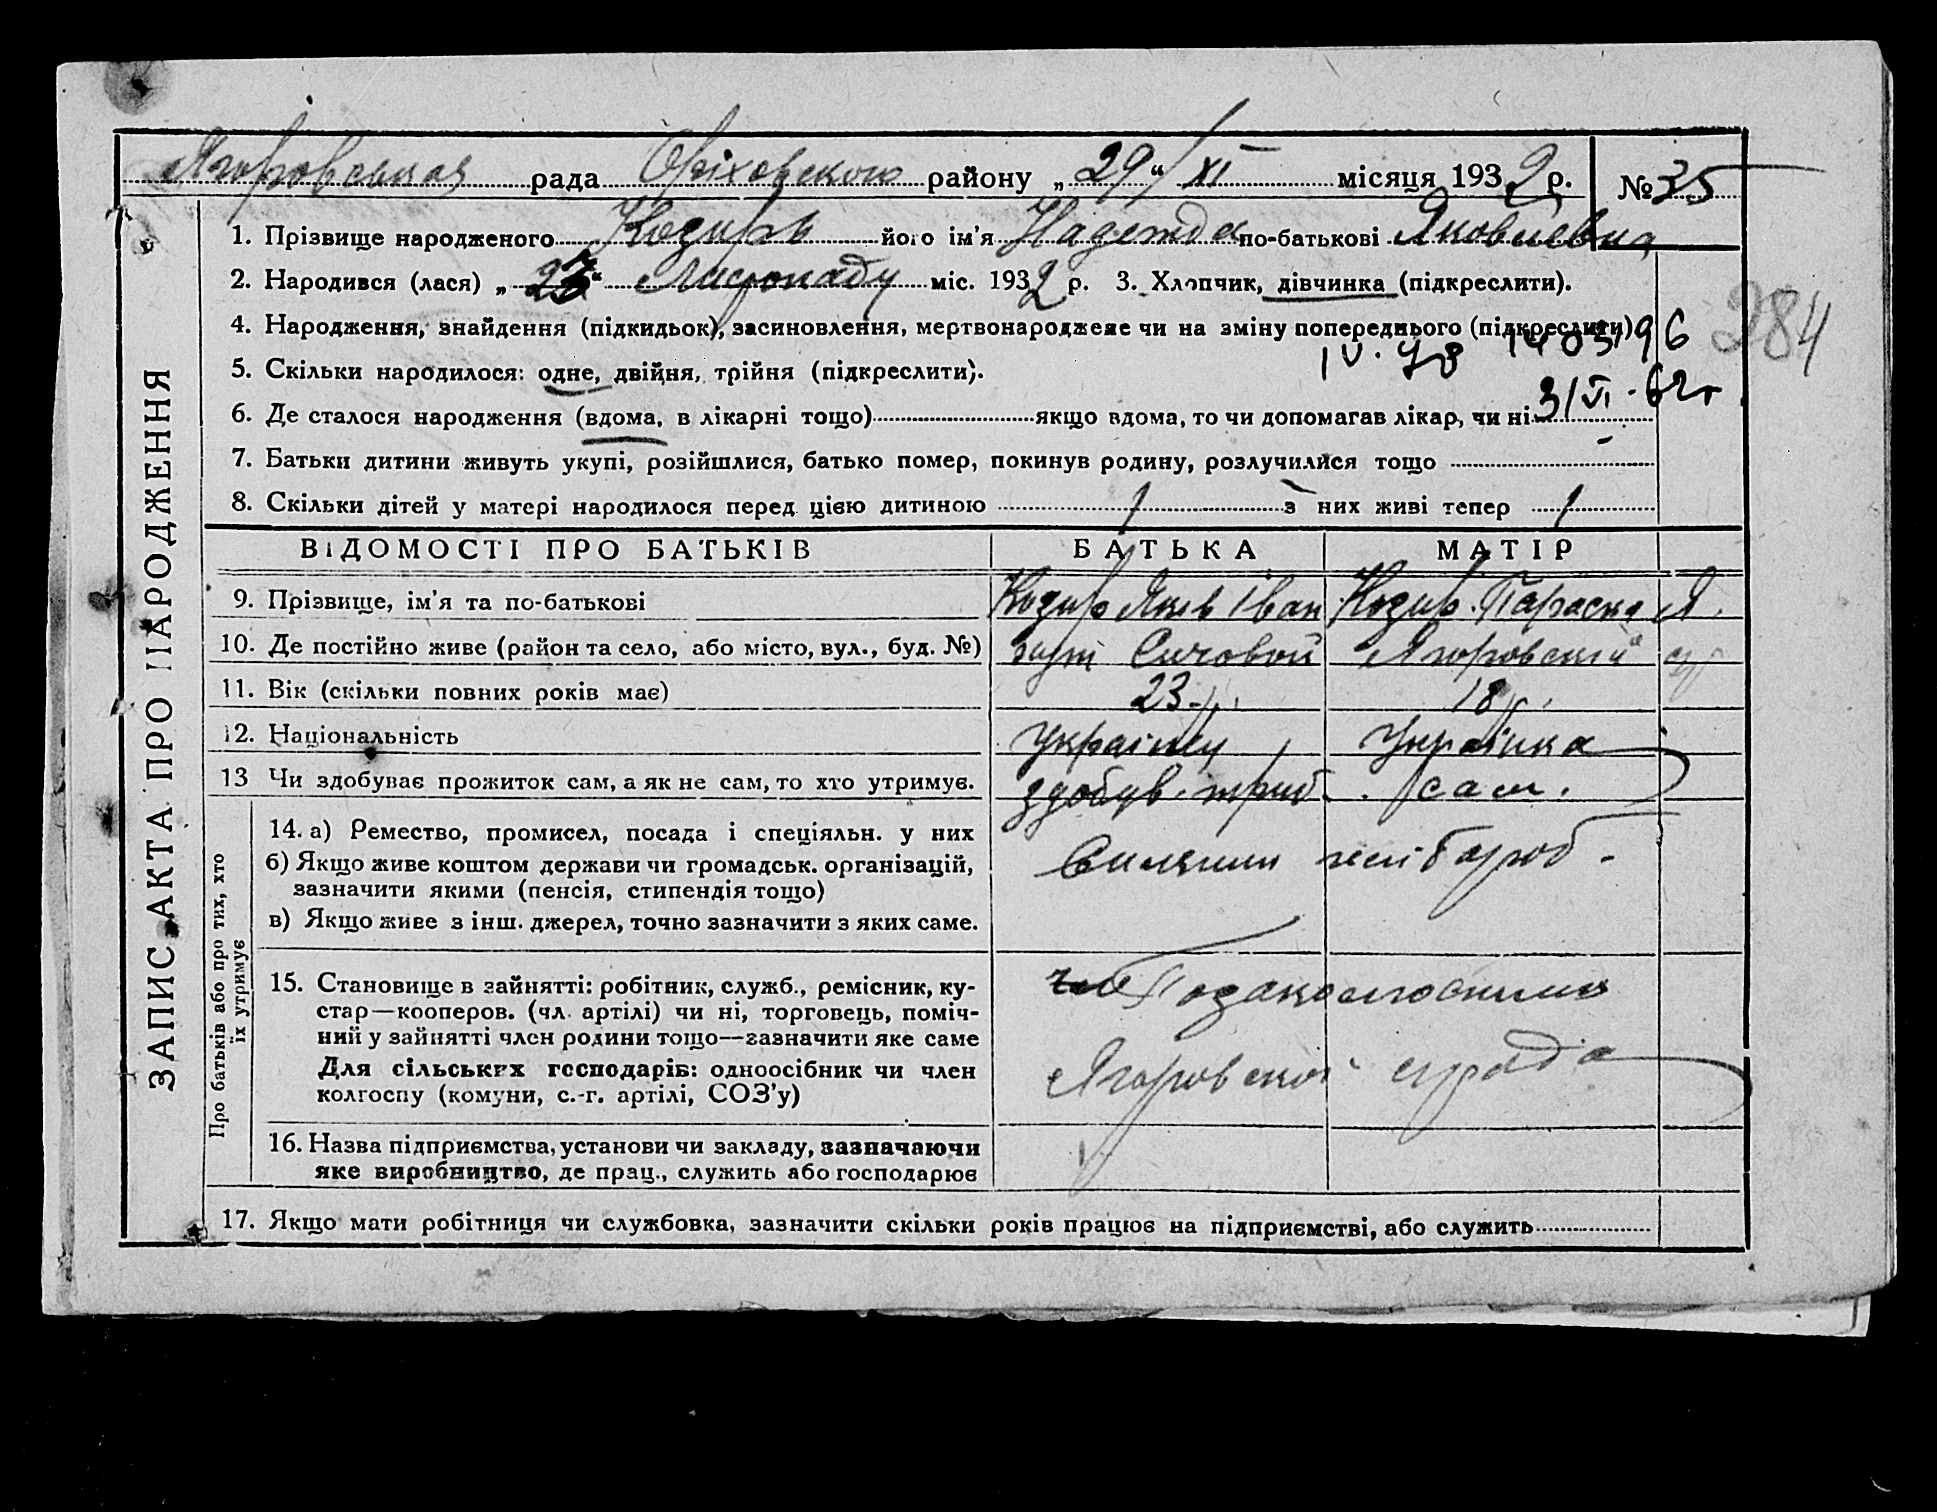 Ягоровская рада Оріховского району „29“ XI місяця 1932 р. № 35
1. Прізвище народженого Козирь його ім'я Надежда по-батькові Яковлевна
2. Народився (лася) „23“ Листопаду міс. 1932 р. 3. Хлопчик, дівчинка (підкреслити).
4. Народження, знайдення (підкидьок), засиновлення, мертвонароджене чи на зміну попереднього (підкреслити)
284
5. Скільки народилося: одне, двійня, трійня (підкреслити).
6. Де сталося народження (вдома, в лікарні тощо) якщо вдома, то чи допомагав лікар, чи ні
31 VI - 62 г
7. Батьки дитини живуть укупі, розійшлися, батько помер, покинув родину, розлучилися тощо
8. Скільки дітей у матері народилося перед цією дитиною 1 з них живі тепер 1
ЗАПИС АКТА ПРО НАРОДЖЕННЯ
ВІДОМОСТІ ПРО БАТЬКІВ БАТЬКА МАТІР
9. Прізвище, ім'я та по-батькові Козир Яків Іван Козир Параска Я.
10. Де постійно живе (район та село, або місто, вул., буд. №) Ягоровскій
11. Вік (скільки повних років має) 23 р. 18 р.
12. Національність Українц Українка
13 Чи здобуває прожиток сам, а як не сам, то хто утримує. здобув. сам.
Про батьків або про тих, хто їх утримує
14. а) Ремество, промисел, посада і спеціяльн. у них
б) Якщо живе коштом держави чи громадськ. організацій,
зазначити якими (пенсія, стипендія тощо)
в) Якщо живе з інш. джерел, точно зазначити з яких саме.
15. Становище в зайнятті: робітник, служб., ремісник, ку-
стар—кооперов. (чл. артілі) чи ні, торговець, поміч-
ний у зайнятті член родини тощо—зазначити яке саме
Для сільських господарів: одноосібник чи член
колгоспу (комуни, с.-г. артілі, СОЗ'у)
Ягоровской
16. Назва підприємства, установи чи закладу, зазначаючи
яке виробництво, де прац., служить або господарює
17. Якщо мати робітниця чи службовка, зазначити скільки років працює на підприємстві, або служить